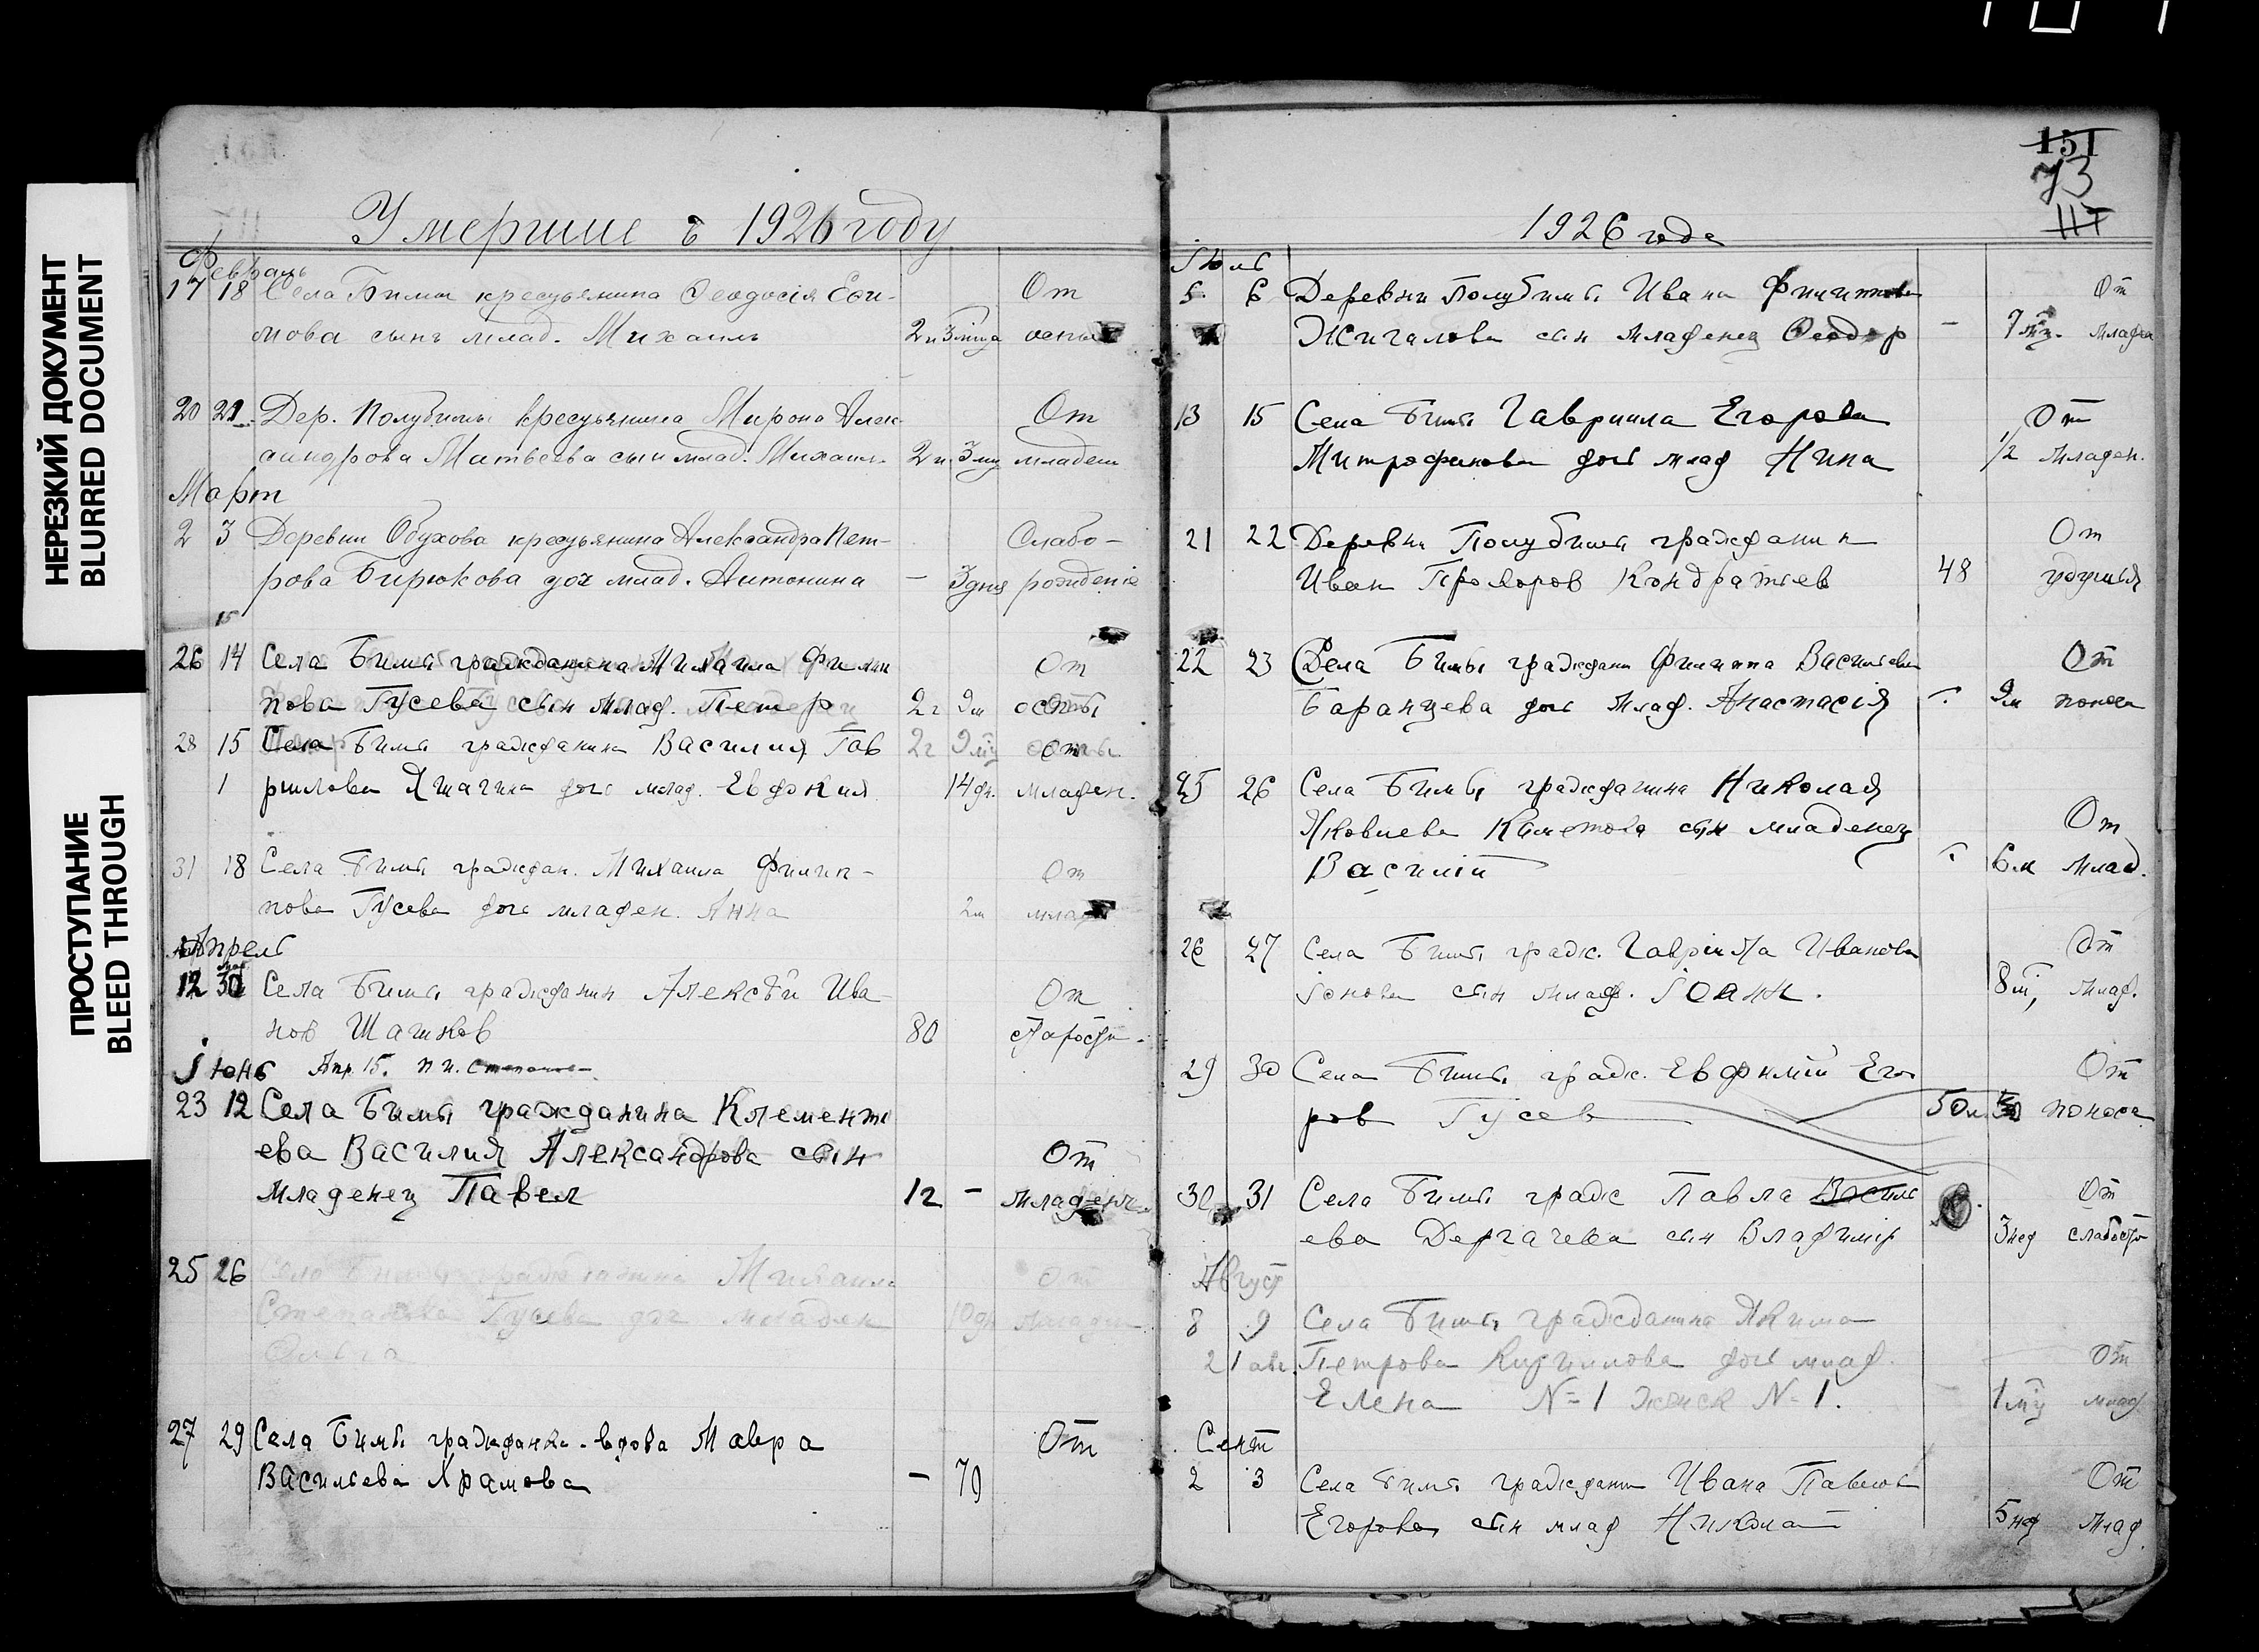 НЕРЕЗКИЙ ДОКУМЕНТ
BLURRED DOCUMENT
ПРОСТУПАНИЕ
BLEED THROUGH
Умершие в 1926 году
Февраль
17 18 Села Бимы крестьянина Ѳеодосія
сынъ млад. Михаилъ 2 и 3 мца От оспы
20 21 Дер. Полубимы крестьянина Мирона Алек-
сандрова Матвеева сын млад. Михаил 2 и 3 мц От младен
Март
2 3 Деревни Обухова крестьянина Александра Пет-
рова Бирюкова доч млад. Антонина – 3 дня Слабо-рожденіе
15
26 14 Села Бимы гражданина Михаила Филип
пова Гусева сын млад. Петр 2 г 9 м От оспы
28 15 Села Бимы гражданина Василия Гав 2 г 9 мц
1 рилова Яшагина дочь млад. Евдокия 14 дн. младен.
31 18 Села Бимы граждан. Михаила Филип-
пова Гусева дочь младен. Анна 2 м От млад
Апрель
12 30 Села Бимы гражданин Алексѣй Ива-
нов Шашков 80 От старости.
Iюнь Апр. 15. п. и.
23 12 Села Бимы гражданина Клементь
ева Василия Александрова сын
младенец Павел 12 – От младенч.
25 26 Села Бимы гражданина Михаила
Степанова Гусева доч младен
Ольга 10 дн От младен
27 29 Села Бимы гражданка вдова Мавра
Васильева Храмова – 79 От
151
73
117
1926 года
Iюль
5 6 Деревни Полубимы Ивана Филиппова
Жигалова сын младенец Ѳеодор – 7 мц. От младен
13 15 Села Бимы Гавриила Егорова
Митрофанова дочь млад Нина 1/2 От младен.
21 22 Деревни Полубимы гражданин
Иван Прохоров Кондратьев 48 От удушья
22 23 Села Бимы граждани Филиппа Васильева
Баранцева дочь млад. Анастасія 9 м От поноса
25 26 Села Бимы гражданина Николая
Яковлева Каметова сын младенец
Василій 6 м От млад.
26 27 Села Бимы гражд. Гавріила Иванова
Iонова сын млад. Iоанн. 8 м, От млад.
29 30 Села Бимы гражд. Евфимій Его
ров Гусев 50 л От поноса
30 31 Села Бимы гражд Павла Василь
ева Дергачева сын Владимір 3 нед От слабости
Август
8 9 Села Бимы гражданина Якима
21 авг. Петрова Кириллова дочь млад.
Елена № 1 женск № 1. 1 мц От млад
Сент
2 3 Села Бимы граждани Ивана Павлов
Егорова сын млад Николай 5 нед От млад.